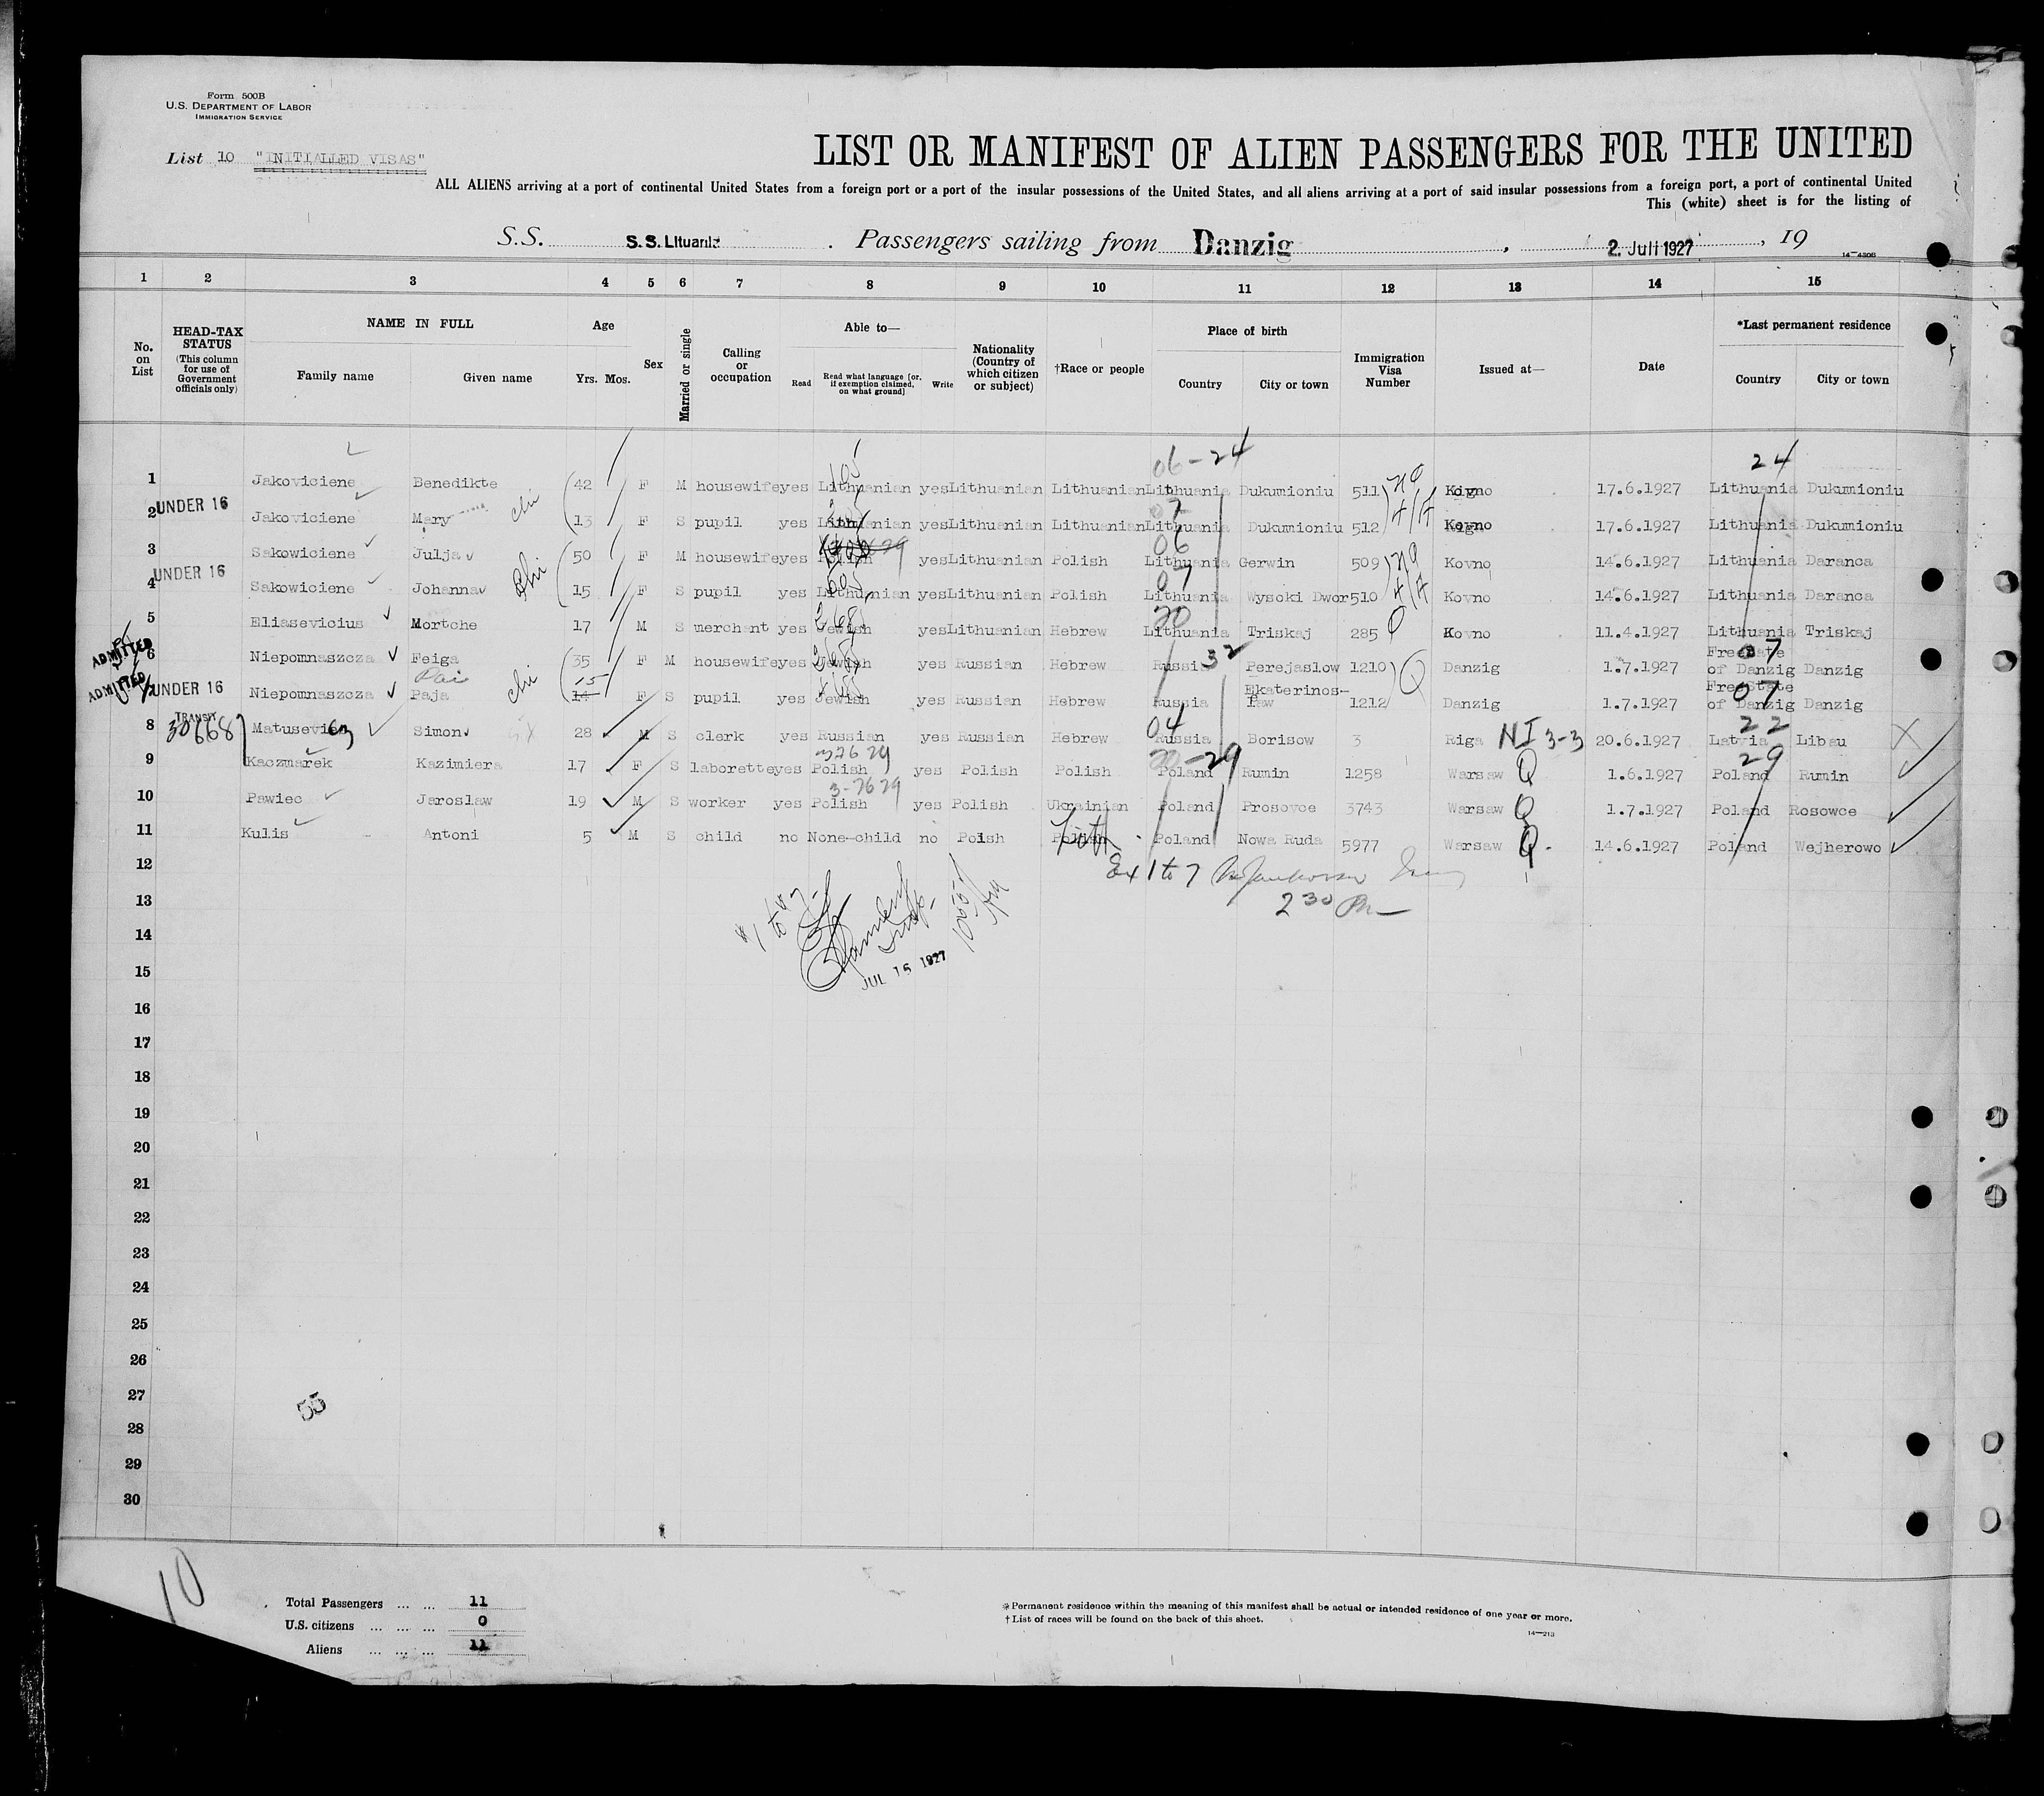 Form 500B
U.S. DEPARTMENT OF LABOR
IMMIGRATION SERVICE
List 10 "INITIALLED VISAS"
LIST OR MANIFEST OF ALIEN PASSENGERS FOR THE UNITED
ALL ALIENS arriving at a port of continental United States from a foreign port or a port of the insular possessions of the United States, and all aliens arriving at a port of said insular possessions from a foreign port, a port of continental United
This (white) sheet is for the listing of
S.S. S.S. Lituania. Passengers sailing from Danzig, 2. Juli 1927, 19
14—4306
1 2 3 4 5 6 7 8 9 10 11 12 13 14 15
No. on List
HEAD-TAX STATUS (This column for use of Government officials only)
NAME IN FULL
Family name Given name
Age
Yrs. Mos.
Sex
Married or single
Calling or occupation
Able to—
Read Read what language [or, if exemption claimed, on what ground] Write
Nationality (Country of which citizen or subject)
†Race or people
Place of birth
Country City or town
Immigration Visa Number
Issued at—
Date
*Last permanent residence
Country City or town
06-24 24
1 Jakoviciene Benedikte 42 F M housewife yes Lithuanian yes Lithuanian Lithuanian Lithuania Dukumioniu 511 Kovno 17.6.1927 Lithuania Dukumioniu
2 UNDER 16 Jakoviciene Mary chi 13 F S pupil yes Lithuanian yes Lithuanian Lithuanian Lithuania Dukumioniu 512 Kovno 17.6.1927 Lithuania Dukumioniu
3 Sakowiciene Julja 50 F M housewife yes Polish yes Lithuanian Polish Lithuania Gerwin 509 Kovno 14.6.1927 Lithuania Daranca
4 UNDER 16 Sakowiciene Johanna chi 15 F S pupil yes Lithunian yes Lithuanian Polish Lithuania Wysoki Dwor 510 Kovno 14.6.1927 Lithuania Daranca
5 Eliasevicius Mortche 17 M S merchant yes Jewish yes Lithuanian Hebrew Lithuania Triskaj 285 Q Kovno 11.4.1927 Lithuania Triskaj
ADMITTED 6 Niepomnaszcza Feiga 35 F M housewife yes Jewish yes Russian Hebrew Russia 32 Perejaslow 1210 Q Danzig 1.7.1927 Free State of Danzig 07 Danzig
Pai 15
ADMITTED 7 UNDER 16 Niepomnaszcza Paja chi 14 F S pupil yes Jewish yes Russian Hebrew Russia Ekaterinos-law 1212 Danzig 1.7.1927 Free State of Danzig 07 Danzig
TRANSIT 30668
8 Matusevicz Simon 28 M S clerk yes Russian yes Russian Hebrew Russia 04 Borisow 3 Riga NI 3-3 20.6.1927 Latvia 22 Libau X
9 Kaczmarek Kazimiera 17 F S laborette yes Polish yes Polish Polish Poland Rumin 1258 Warsaw Q 1.6.1927 Poland 29 Rumin
10 Pawiec Jaroslaw 19 M S worker yes Polish yes Polish Ukrainian Poland Prosovce 3743 Warsaw Q 1.7.1927 Poland Rosowce
11 Kulis Antoni 5 M S child no None-child no Polsh Polish Poland Nowa Ruda 5977 Warsaw Q 14.6.1927 Poland Wejherowo
12 Ex 1 to 7
13 2 30 PM
14
15 JUL 15 1927
16
17
18
19
20
21
22
23
24
25
26
27 55
28
29
30
10
Total Passengers ... ... 11
U.S. citizens ... ... ... 0
Aliens ... ... ... 11
*Permanent residence within the meaning of this manifest shall be actual or intended residence of one year or more.
†List of races will be found on the back of this sheet.
14—213